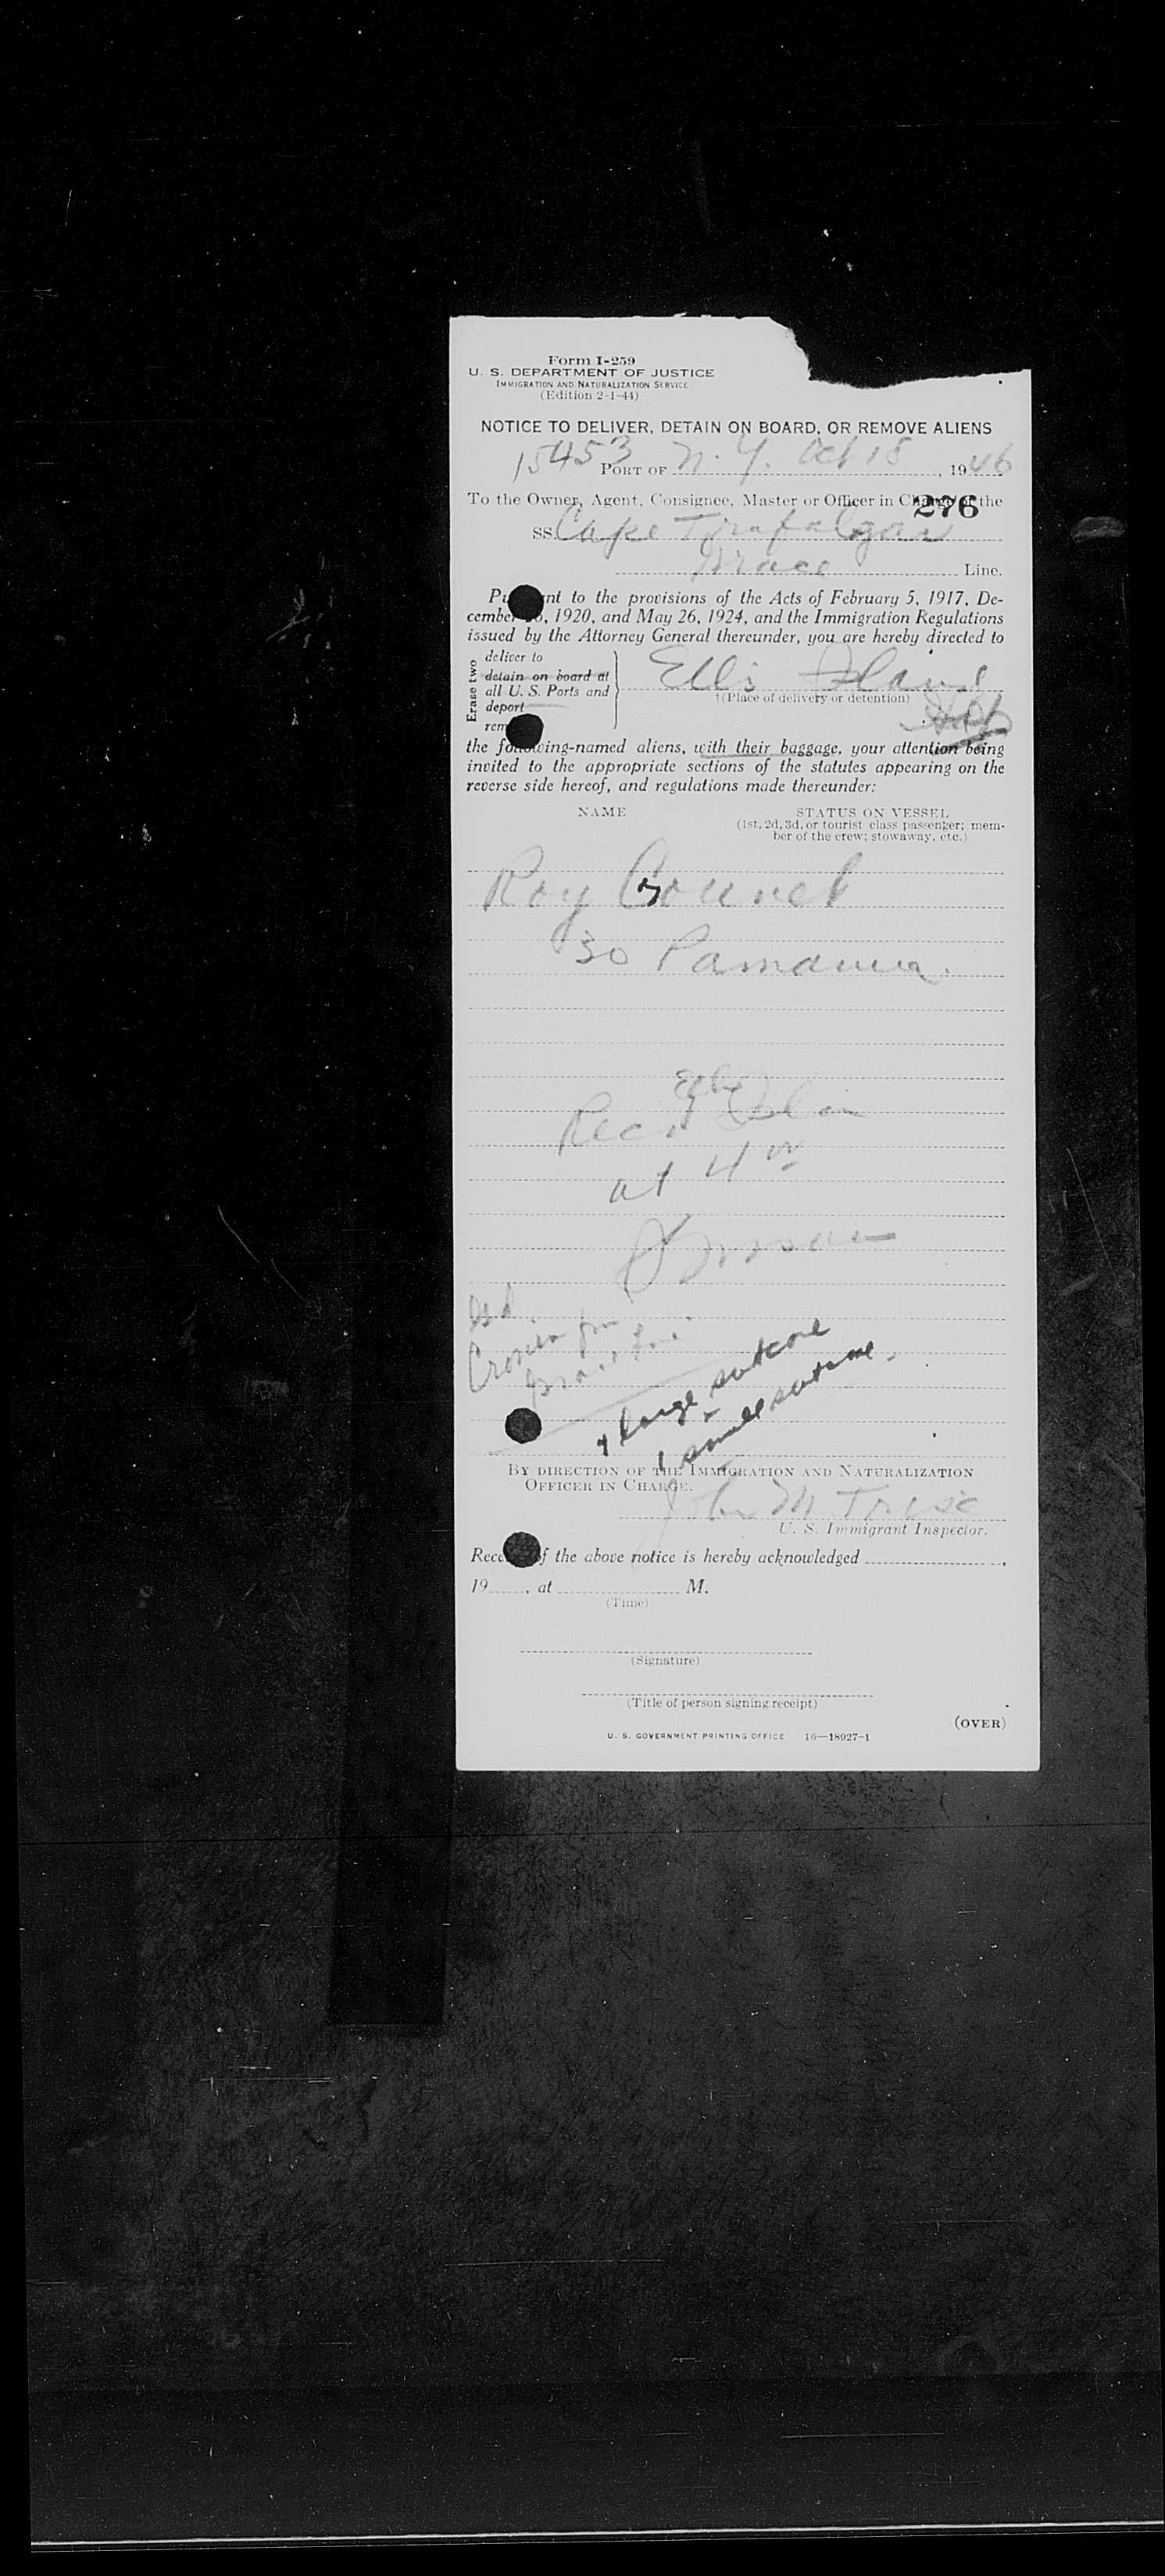 Form I-259
U. S. DEPARTMENT OF JUSTICE
IMMIGRATION AND NATURALIZATION SERVICE
(Edition 2-1-44)
NOTICE TO DELIVER, DETAIN ON BOARD, OR REMOVE ALIENS
15453 PORT OF N. Y. Oct 18, 1946
To the Owner, Agent, Consignee, Master or Officer in Charge of the
276
SS Cape Trafalgar
Grace Line.
Pu nt to the provisions of the Acts of February 5, 1917, De-
cember 6, 1920, and May 26, 1924, and the Immigration Regulations
issued by the Attorney General thereunder, you are hereby directed to
Erase two
deliver to
detain on board at
all U. S. Ports and
deport
rem
Ellis Island
†(Place of delivery or detention)
the following-named aliens, with their baggage, your attention being
invited to the appropriate sections of the statutes appearing on the
reverse side hereof, and regulations made thereunder:
NAME
STATUS ON VESSEL
(1st, 2d, 3d, or tourist class passenger; mem-
ber of the crew; stowaway, etc.)
Roy
30
Rec'd
at 4
large suitcase
1 small suitcase.
BY DIRECTION OF THE IMMIGRATION AND NATURALIZATION
OFFICER IN CHARGE.
John M
U. S. Immigrant Inspector.
Rece f the above notice is hereby acknowledged ,
19 , at M.
(Time)
(Signature)
(Title of person signing receipt)
(OVER)
U. S. GOVERNMENT PRINTING OFFICE 16—18927-1